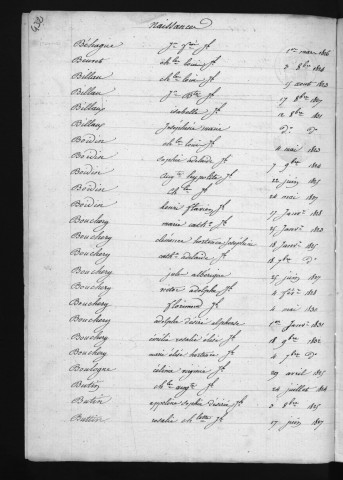 naissances
Béhague J.n f.ois J.h 1er mars 1826
Benoit ch.les louis J.h
Billau ch.les louis J.h 15 août 1823
Billau J.n B.te J.h 17 8bre 1827
Billaux isabelle J.h 2 8bre
Billaux Josephine marie d.o d.o
Boidin ch.les louis J.h 11 mai 1823
Boidin sophie adelaide J.h 7 9bre 1826
Boidin aug.te hypolite J.h 12 juin 1825
Boidin ch.les J.h 20 mai 1827
Boidin louis flavien J.h 27 Janv.r 1828
Bouchery marie cath.e J.h 25 Janv.r 1820
Bouchery clemence hortence Josephine 18 Janv.r 1825
Bouchery cath.e adelaide J.h 18 9bre d.o
Bouchery jule alberique 25 juin 1827
Bouchery victor adolphe J.h 4 fév.r 1828
Bouchery florimond J.h 4 mai 1830
Bouchery adolphe désiré alphonse 1er Janv.r 1831
Bouchery emilie rosalie élise J.h 18 9bre 1832
Bouchery marie élise hortence J.h 4 9bre d.o
Boulogne celina eugenie J.h 29 avril 1825
Butin ch.les aug.te J.h 24 juillet 1826
Butin appoline sophie désirée J.h 2 8bre 1825
Buttin rosalie ch.lotte J.h 27 juin 1827